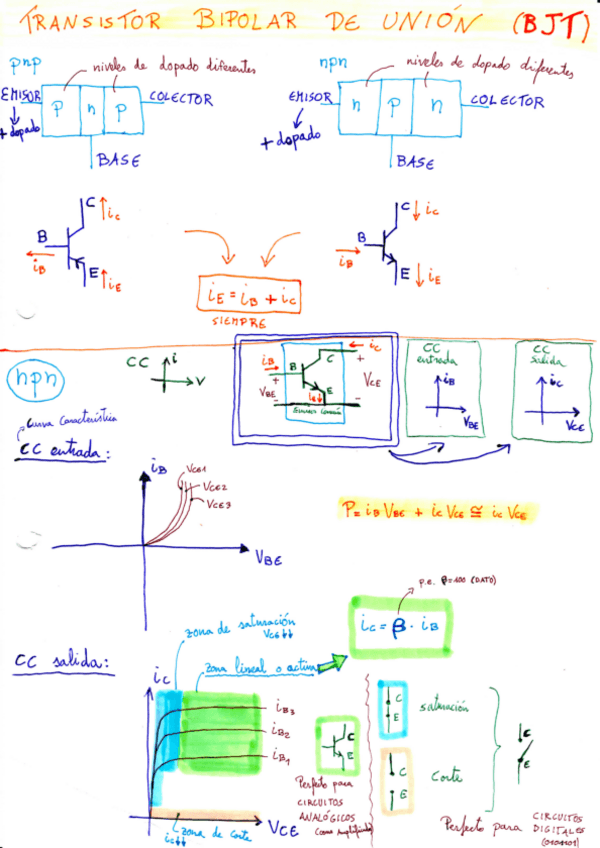 TRANSISTOR BIPOLAR DE UNIÓN (BJT)
pnp
niveles de dopado diferentes
EMISOR
p n p
COLECTOR
+ dopado
BASE
npn
niveles de dopado diferentes
EMISOR
n p n
COLECTOR
+ dopado
BASE
C
ic
B
iB
E
iE
iE = iB + ic
SIEMPRE
C
ic
B
iB
E
iE
npn
CC
i
V
iB
B
C
ic
+
+
VBE
VCE
E
-
-
Emisor Común
CC entrada
iB
VBE
CC salida
ic
VCE
Curva Característica
CC entrada:
iB
VCE1
VCE2
VCE3
VBE
P = iB VBE + ic VCE ≅ ic VCE
p.e. β=100 (DATO)
ic = β · iB
CC salida:
zona de saturación
VCE ↓↓
zona lineal o activa
ic
iB3
iB2
iB1
VCE
zona de corte
ic ↓↓
C
E
Perfecto para
CIRCUITOS
ANALÓGICOS
(como amplificador)
C
E
saturación
C
E
Corte
C
E
Perfecto para
CIRCUITOS
DIGITALES